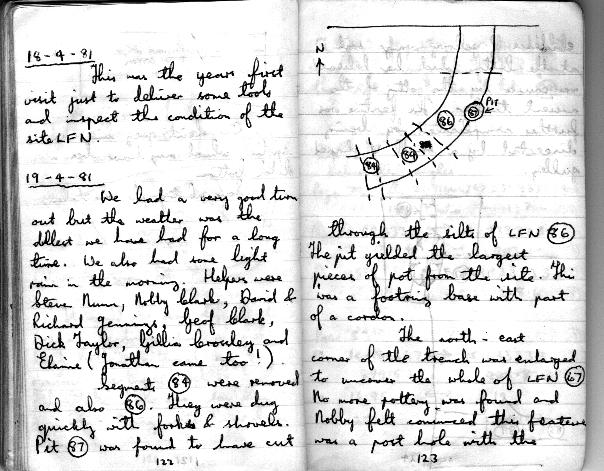 18-4-81
This was the years first
visit just to deliver some tools
and inspect the condition of the
site LFN.
19-4-81
We had a very good turn
out but the weather was the
dullest we have had for a long
time. We also had some light
rain in the morning. Helpers were
Steve Nunn, Nobby Clark, David &
Richard Jennings, Geof Clark,
Dick Taylor, Gillie Crossley and
Elaine (Jonathan came too!)
Segments 84 were removed
and also 86. They were dug
quickly with forks & shovels.
Pit 87 was found to have cut
122
N
PIT
87
86
84
84
through the silts of LFN 86
The pit yielded the largest
pieces of pot from the site. This
was a footring base with part
of a cordon.
The north-east
corner of the trench was enlarged
to uncover the whole of LFN 67
No more pottery was found and
Nobby felt convinced this feature
was a post hole with the
123